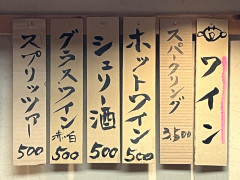 ワイン
スパークリング
3,500
ホットワイン
500
シェリー酒
500
グラスワイン
赤・白
500
スプリッツァー
500